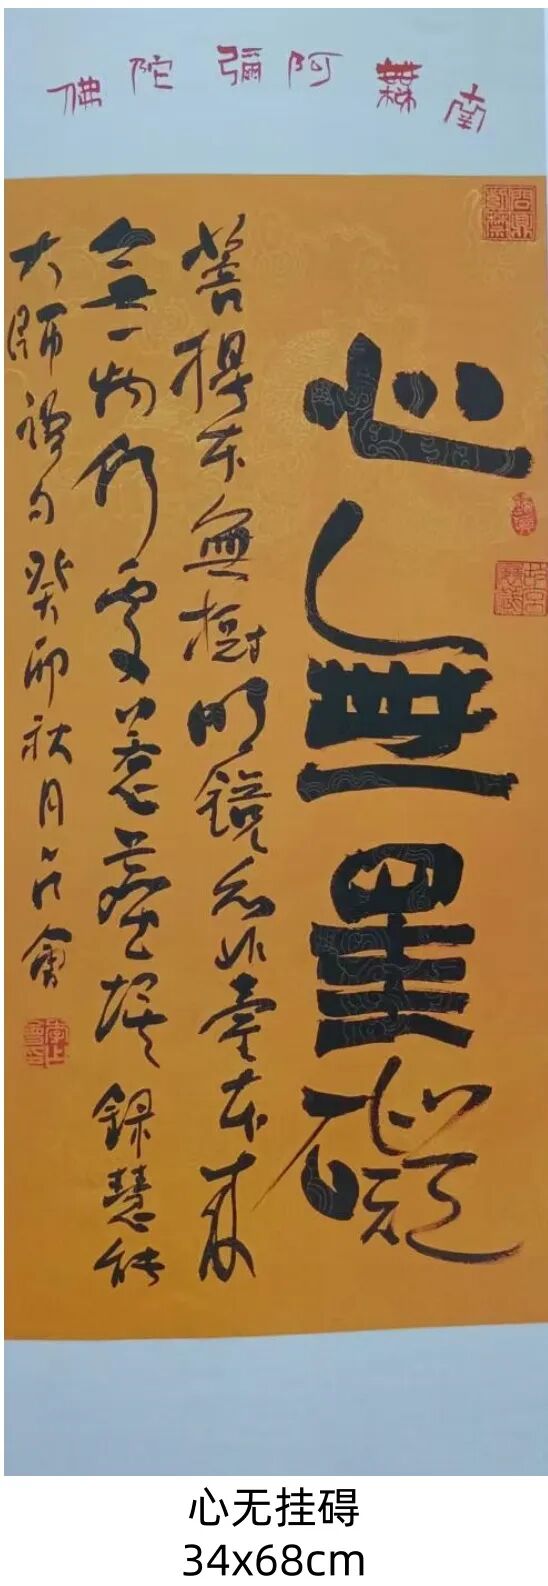 南無阿彌陀佛
心無罣礙
菩提本無樹明鏡亦非臺本來
無一物何處惹塵埃 錄慧能
大師禪句癸卯秋月 會
心无挂碍
34x68cm